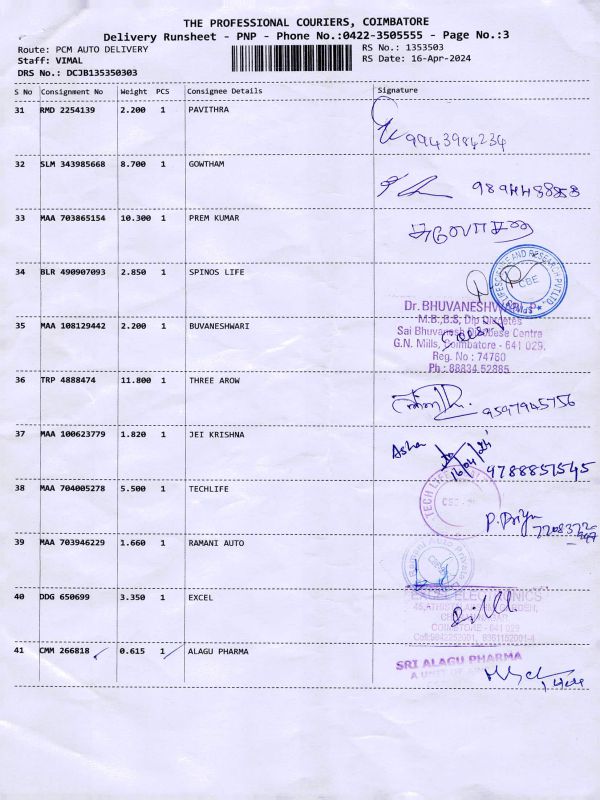 THE PROFESSIONAL COURIERS, COIMBATORE
Delivery Runsheet - PNP - Phone No.:0422-3505555 - Page No.:3
Route: PCM AUTO DELIVERY
RS No.: 1353503
Staff: VIMAL
RS Date: 16-Apr-2024
DRS No.: DCJB135350303
S No Consignment No Weight PCS Consignee Details Signature
31 RMD 2254139 2.200 1 PAVITHRA
9943984234
32 SLM 343985668 8.700 1 GOWTHAM
33 MAA 703865154 10.300 1 PREM KUMAR
34 BLR 490907093 2.850 1 SPINOS LIFE
CBE
Dr. BHUVANESHWARI
M.B.,B.S, Dip Diabetes
35 MAA 108129442 2.200 1 BUVANESHWARI
Sai Bhuvanesh Diabese Centre
G.N. Mills, Coimbatore - 641 029.
Reg. No : 74760
Ph : 88834 52885
36 TRP 4888474 11.800 1 THREE AROW
9597945756
37 MAA 100623779 1.820 1 JEI KRISHNA
Asha
16/04/24
9788851545
38 MAA 704005278 5.500 1 TECHLIFE
P. Priya
39 MAA 703946229 1.660 1 RAMANI AUTO
40 DDG 650699 3.350 1 EXCEL
EXCEL ELECTRONICS
COIMBATORE - 641 029
41 CMM 266818 0.615 1 ALAGU PHARMA
SRI ALAGU PHARMA